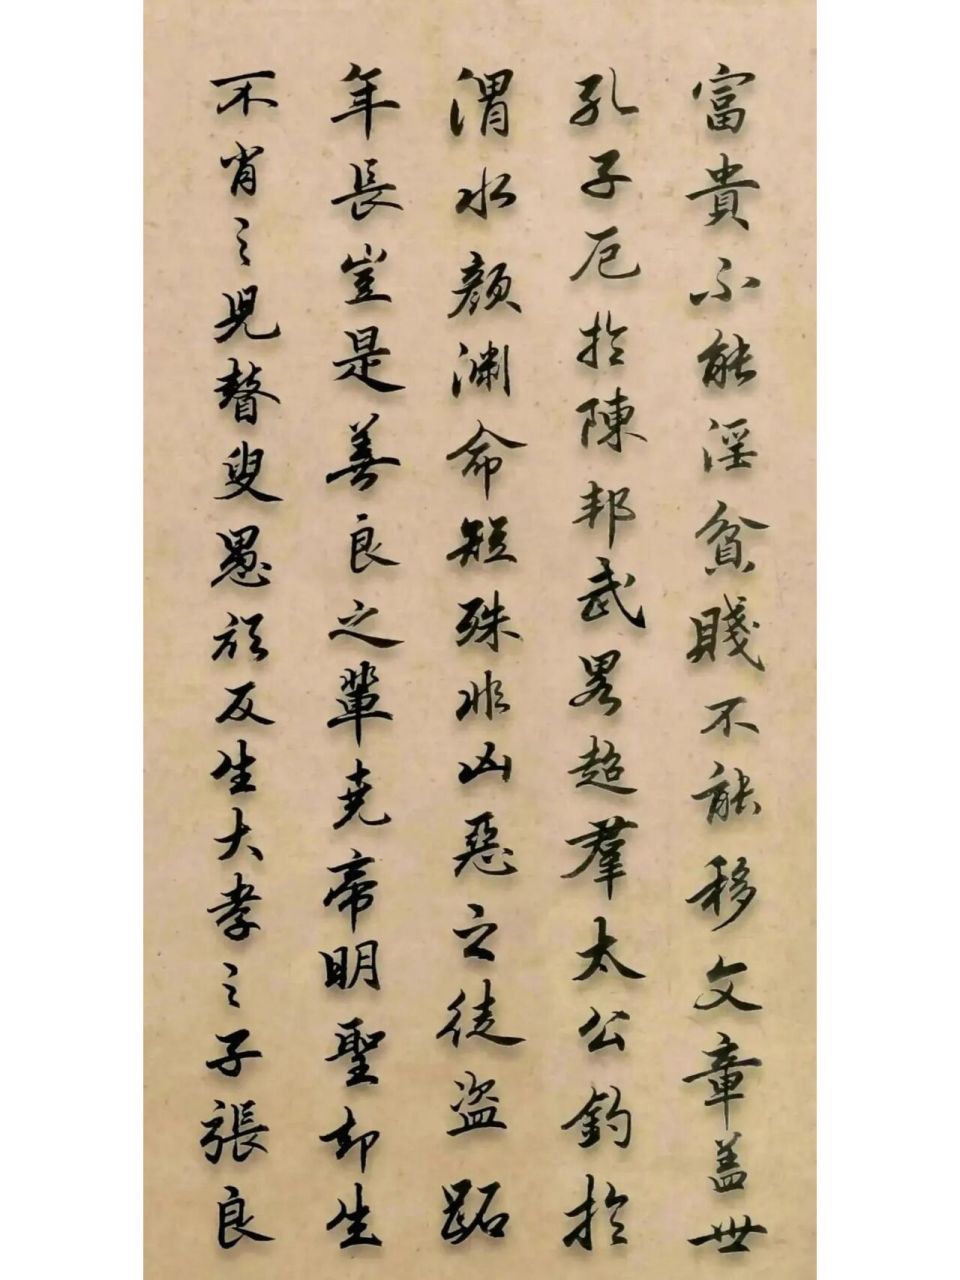 富貴不能淫貧賤不能移文章盖世
孔子厄扵陳邦武畧超羣太公釣扵
渭水顏淵命短殊非凶惡之徒盗跖
年長豈是善良之輩尭帝明聖却生
不肖之児瞽叟愚頑反生大孝之子張良